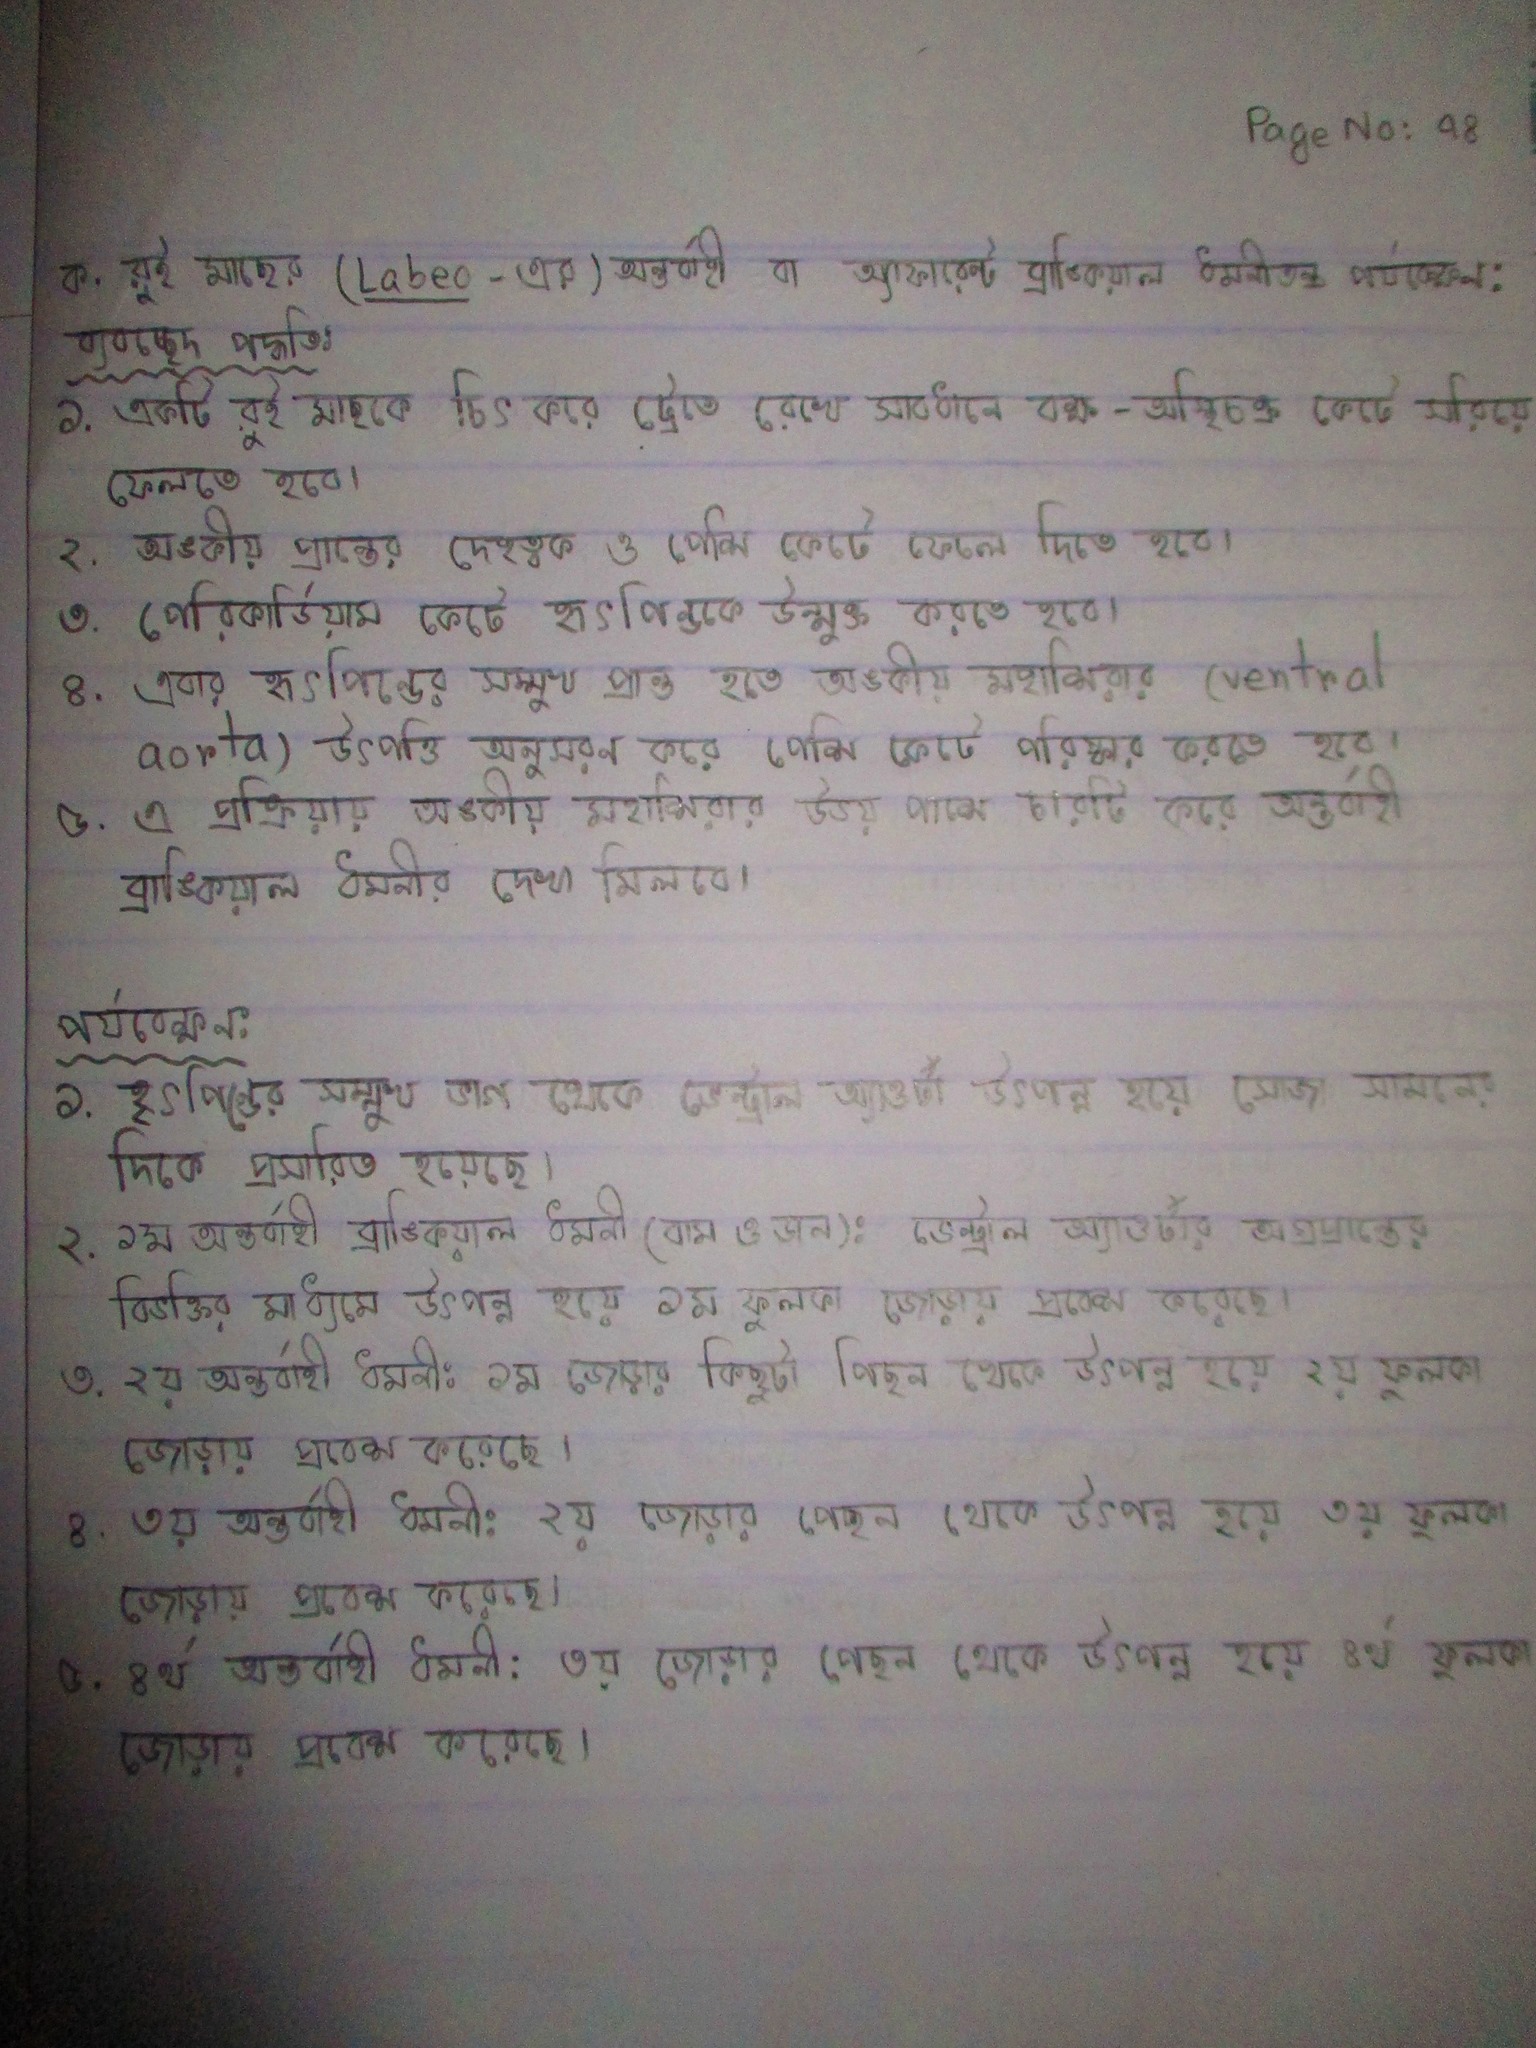 Page No: ৭৪
ক. রুই মাছের (Labeo - এর) অন্তর্বাহী বা অ্যাফারেন্ট ব্রাঙ্কিয়াল ধমনীতন্ত্র পর্যবেক্ষন:
ব্যবচ্ছেদ পদ্ধতি:
১. একটি রুই মাছকে চিৎ করে ট্রেতে রেখে সাবধানে বক্ষ - অস্থিচক্র কেটে সরিয়ে
ফেলতে হবে।
২. অঙ্কীয় প্রান্তের দেহত্বক ও পেশি কেটে ফেলে দিতে হবে।
৩. পেরিকার্ডিয়াম কেটে হৃৎপিন্ডকে উন্মুক্ত করতে হবে।
৪. এবার হৃৎপিন্ডের সম্মুখ প্রান্ত হতে অঙ্কীয় মহাশিরার (ventral
aorta) উৎপত্তি অনুসরণ করে পেশি কেটে পরিষ্কার করতে হবে।
৫. এ প্রক্রিয়ায় অঙ্কীয় মহাশিরার উভয় পাশে চারটি করে অন্তর্বাহী
ব্রাঙ্কিয়াল ধমনীর দেখা মিলবে।
পর্যবেক্ষন:
১. হৃৎপিন্ডের সম্মুখ ভাগ থেকে ভেন্ট্রাল অ্যাওর্টা উৎপন্ন হয়ে সোজা সামনের
দিকে প্রসারিত হয়েছে।
২. ১ম অন্তর্বাহী ব্রাঙ্কিয়াল ধমনী (বাম ও ডান): ভেন্ট্রাল অ্যাওর্টার অগ্রপ্রান্তের
বিভক্তির মাধ্যমে উৎপন্ন হয়ে ১ম ফুলকা জোড়ায় প্রবেশ করেছে।
৩. ২য় অন্তর্বাহী ধমনী: ১ম জোড়ার কিছুটা পিছন থেকে উৎপন্ন হয়ে ২য় ফুলকা
জোড়ায় প্রবেশ করেছে।
৪. ৩য় অন্তর্বাহী ধমনী: ২য় জোড়ার পেছন থেকে উৎপন্ন হয়ে ৩য় ফুলকা
জোড়ায় প্রবেশ করেছে।
৫. ৪র্থ অন্তর্বাহী ধমনী: ৩য় জোড়ার পেছন থেকে উৎপন্ন হয়ে ৪র্থ ফুলকা
জোড়ায় প্রবেশ করেছে।